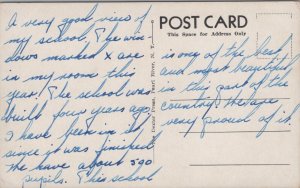 A very good view of
my school. The win-
dows marked x are
in my room this
year! The school was
built four years ago.
I have been in it
since it was finished.
We have about 590
pupils. This school
POST CARD
This Space for Address Only
is one of the best
and most beautiful
in this part of the
country. We are
very proud of it.